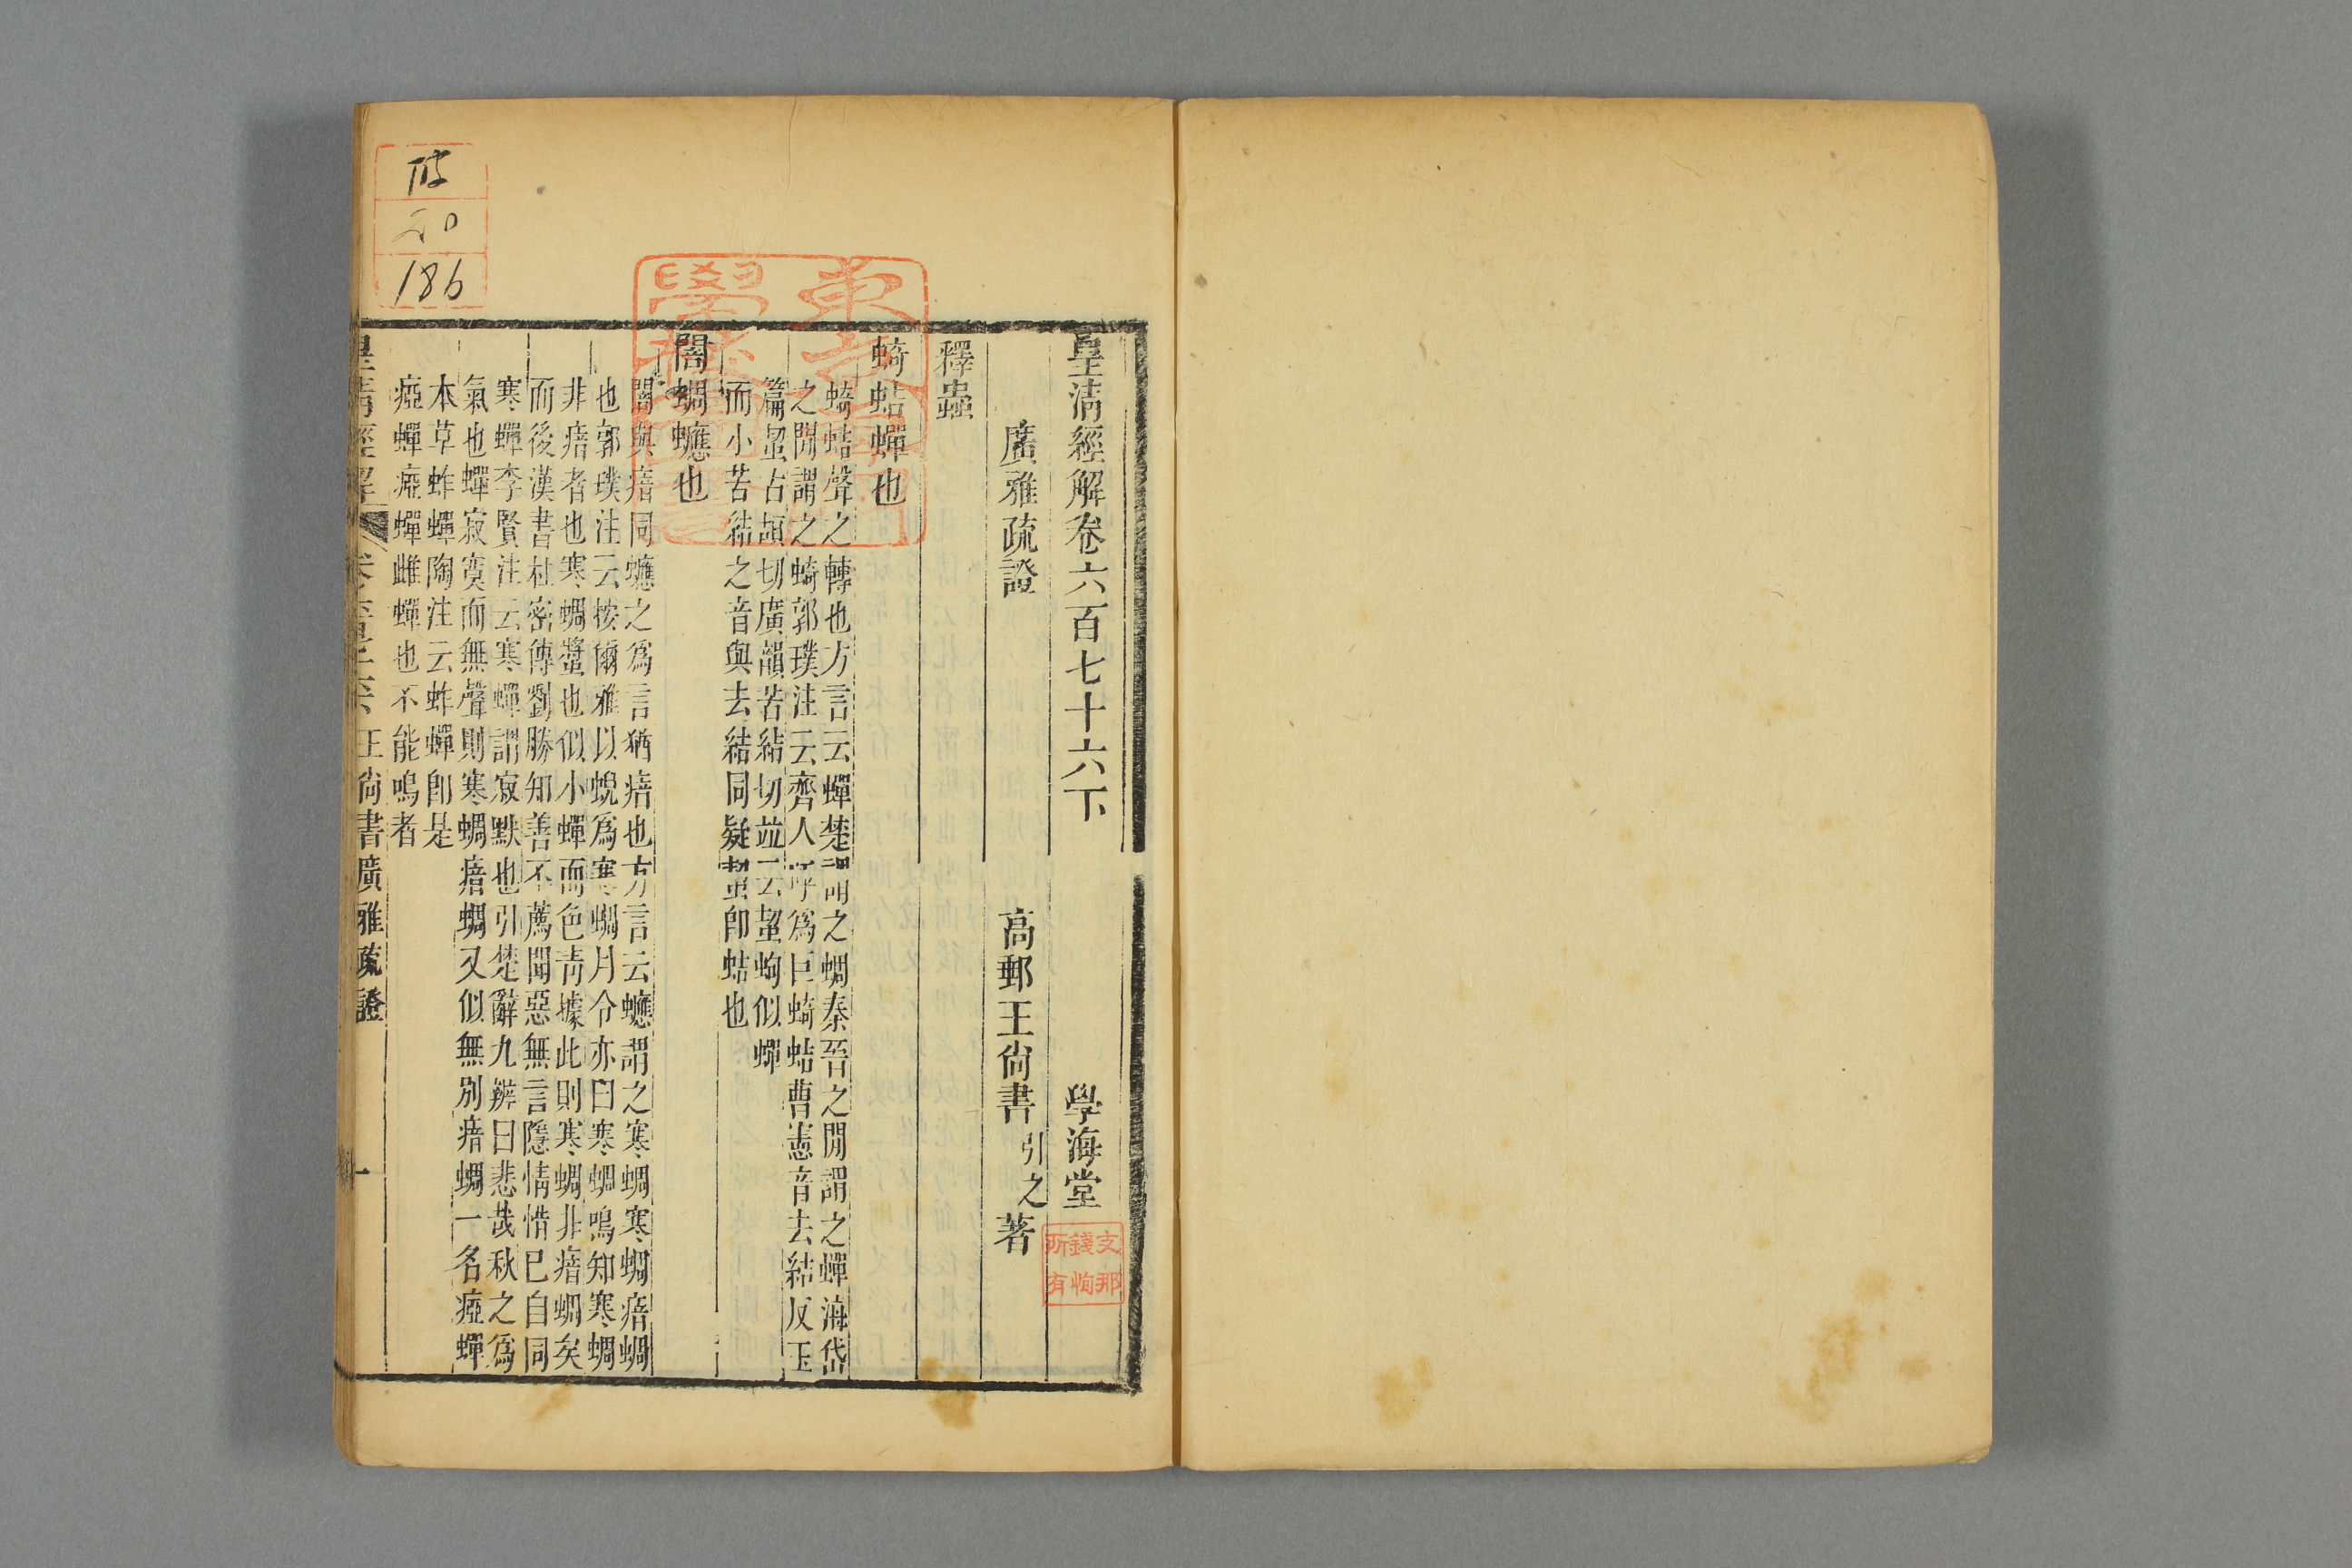 皇清經解卷六百七十六下
學海堂
廣雅疏證
高郵王尚書引之著
釋蟲
蛥蛣蟬也
蛥蛣聲之轉也方言云蟬楚謂之蜩秦晉之閒謂之蟬海岱
之閒謂之蛥郭璞注云齊人呼爲巨蛥蛣曹憲音去結反玉
篇蛪古頡切廣韻苦結切竝云蛪蚼似蟬
而小苦結之音與去結同疑蛪卽蛣也
闇蜩蟪也
闇與瘖同蟪之爲言猶瘖也方言云蟪謂之寒蜩寒蜩瘖蜩
也郭璞注云按爾雅以蜺爲寒蜩月令亦曰寒蜩鳴知寒蜩
非瘖者也寒蜩螿也似小蟬而色靑據此則寒蜩非瘖蜩矣
而後漢書杜密傳劉勝知善不薦聞惡無言隱情惜己自同
寒蟬李賢注云寒蟬謂寂默也引楚辭九辨曰悲哉秋之爲
氣也蟬寂寞而無聲則寒蜩瘖蜩又似無別瘖蜩一名瘂蟬
本草蚱蟬陶注云蚱蟬卽是
瘂蟬瘂蟬雌蟬也不能鳴者
皇清經解
王尚書廣雅疏證
一
支那
錢恂
所有
186